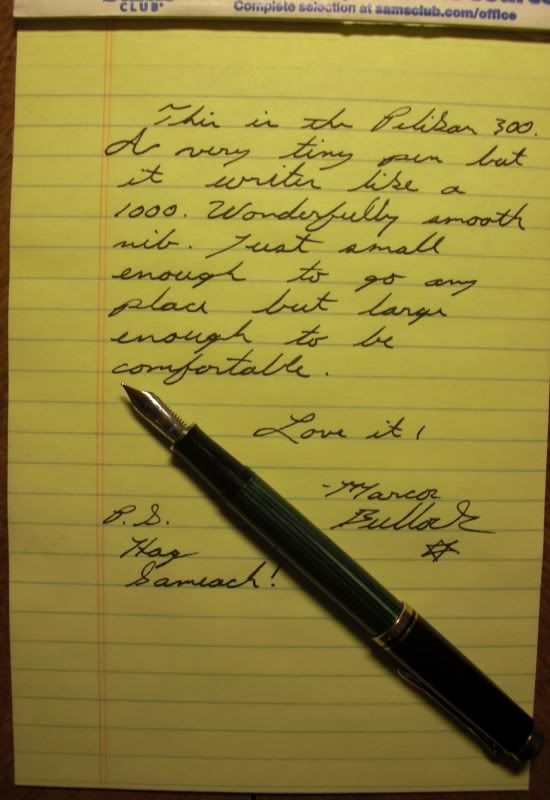 CLUB
Complete selection at samsclub.com/office
This is the Pelikan 300.
A very tiny pen but
it writes like a
1000. Wonderfully smooth
nib. Just small
enough to go any
place but large
enough to be
comfortable.
Love it!
-Marcos
Bullock
P.S.
Hag
Sameach!